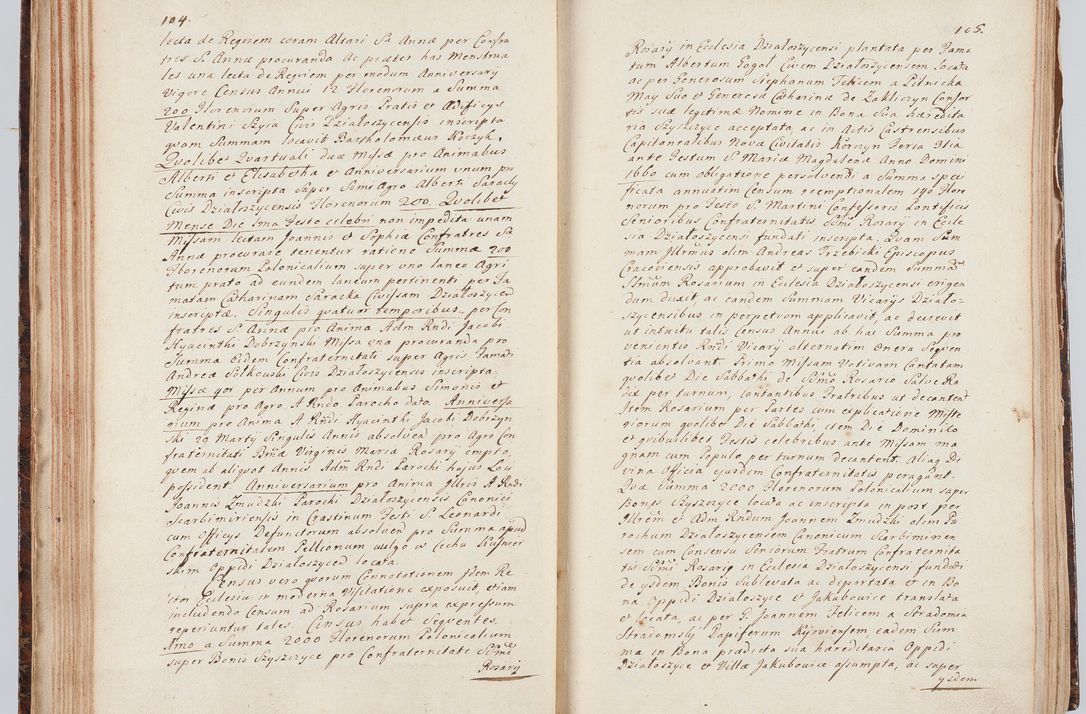 104.
lecta de Reqvem coram Altari Sæ Annæ per Confra
tres S. Annæ procuranda Ac præter has Menstrua
les una lecta de Reqviem per modum Anniversary
Vigore Census Annui 12 Florenorum a Summa
200 Florenorum Super Agris Pratis et Ædificys
Valentini Szyia Civis Działoszycensis inscripta
qvam Summam locavit Bartholomæus Koczyk.
Qvolibet Qvartuali duæ Missæ pro Animabus
Alberti et Elisabetha et Anniversarium unum pro
Summa inscripta Super Semi Agro Alberti Sarady
Civis Działoszycensis Florenorum 200. Qvolibet
Mense Die Ima Festo celebri non impedita unam
Missam lectam Joannis et Sophiæ Confratres Sæ
Annæ procurare tenentur ratione Summæ 200
Florenorum Polonicalium super uno laneo Agri
tum prato ad eundem laneum pertinenti per Fa
matam Catharinam Saracka Civissam Działoszycen
inscriptæ. Singulis qvatuor temporibus per Con
fratres S. Annæ pro Anima Adm Rndi Jacobi
Hyacinthi Dobrzynski Missa una procuranda pro
Summa eidem Confraternitati super Agris Famati
Andreæ Sałkowski Civis Działoszycensis inscripta.
Missæ 90 per Annum pro Animabus Simonis et
Reginæ pro Agro A Rndo Parocho dato. Anniversa
rium pro Anima A Rndi Hyacinthi Jacobi Dobrzyn
ski 29 Marty Singulis Annis absolven pro Agro Con
fraternitati Btæ Virginis Maria Rosary empto
qvem ab aliqvot Annis Adm Rndi Parochi hujus Loci
possident. Anniversarium pro Anima Illris A Rndi
Joannis Zmudzki Parochi Działoszycensis Canonici
Scarbimiriensis in Crastinum Festi S. Leonardi
cum Officys Defunctorum absolven pro Summa apud
Confraternitatem Pellionum vulgo w Cechu Kuśnier
skim Oppidi Działoszycen locata.
Census vero qvorum Connotationem Idem Re
ctor Ecclesiæ in moderna Visitatione exposuit, etiam
includendo Censum ad Rosarium supra expressum
reperiuntur tales. Census habet Seqventes.
Imo a Summa 2000 Florenorum Polonicalium
super Bonis Szyszczyce pro Confraternitate Sstmi
Rosary
105.
Rosary in Ecclesia Działoszycensi plantata per Fama
tum Albertum Gogol Civem Działoszycensem locata
ac per Generosum Stephanum Felicem a Pilnicka
May Suo et Generosæ Catharinæ de Zakliczyn Consor
tis suæ legitimæ Nomine in Bona Sua hæredita
ria Szyszczyce acceptata, ac in Actis Castrensibus
Capitanealibus Novæ Civitatis Korczyn Feria IIIia
ante Festum S. Mariæ Magdalenæ Anno Domini
1660 cum obligatione persolvendi a Summa speci
ficata annuatim Censum reemptionalem 140 Flore
norum pro Festo S. Martini Confessoris Pontificis
Senioribus Confraternitatis Sstmi Rosary in Eccle
sia Działoszycensi fundati inscripta. Qvam Sum
mam Jllrimus olim Andreas Trzebicki Episcopus
Cracoviensis approbavit et super eandem Summam
Sstmum Rosarium in Ecclesia Działoszycensi erigen
dum duxit, ac eandem Summam Vicarys Działo-
szycensibus in perpetvum applicavit, ac decrevit
ut intuitu talis Census Annui ab hac Summa pro
venientis Rndi Vicary alternatim Onera Seqven
tia absolvant. Primo Missam Votivam Cantatam
qvolibet Die Sabbathi de Sstmo Rosario Salve Re
gix per turnum, Cantantibus Fratribus ut decantent
Item Rosarium per Partes cum explicatione Myste
riorum qvolibet Die Sabbathi, item Die Dominico
et qvibuslibet Festis celebribus ante Missam ma
gnam cum Populo per turnum decantent. Aliaq Di
vina Officia ejusdem Confraternitatis peragant.
Qvæ Summa 2000 Florenorum Polonicalium super
Bonis Szyszczyce locata ac inscripta in post per
Illrem et Adm Rndum Joannem Zmudzki olim Pa
rochum Działoszycensem Canonicum Scarbimiren
sem cum Consensu Seniorum Fratrum Confraternita
tis Sstmi Rosary in Ecclesia Działoszycensi fundati
de ysdem Bonis Sublevata ac departata et in Bo
na Oppidi Działoszyce et Jakubowice translata
et locata, ac per G. Joannem Felicem a Stradomia
Stradomsky Dapiferum Kijoviensem eadem Sum
ma in Bona prædicta sua hæreditaria Oppidi
Działoszyce et Villæ Jakubowice assumpta, ac super
ysdem